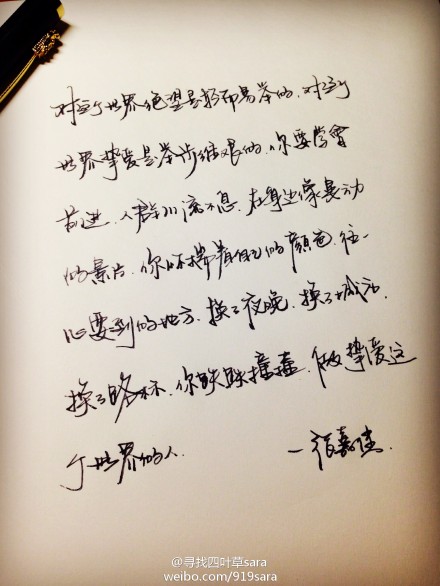 对这个世界绝望是轻而易举的、对这个
世界挚爱是举步维艰的、你要学会
前进、人群川流不息、在身边像晃动
的景片、你怀揣着自己的颜色、往一
心要到的地方、换了夜晚、换了城市、
换了路标、你跌跌撞撞、做挚爱这
个世界的人、
—张嘉佳.
@寻找四叶草sara
weibo.com/919sara